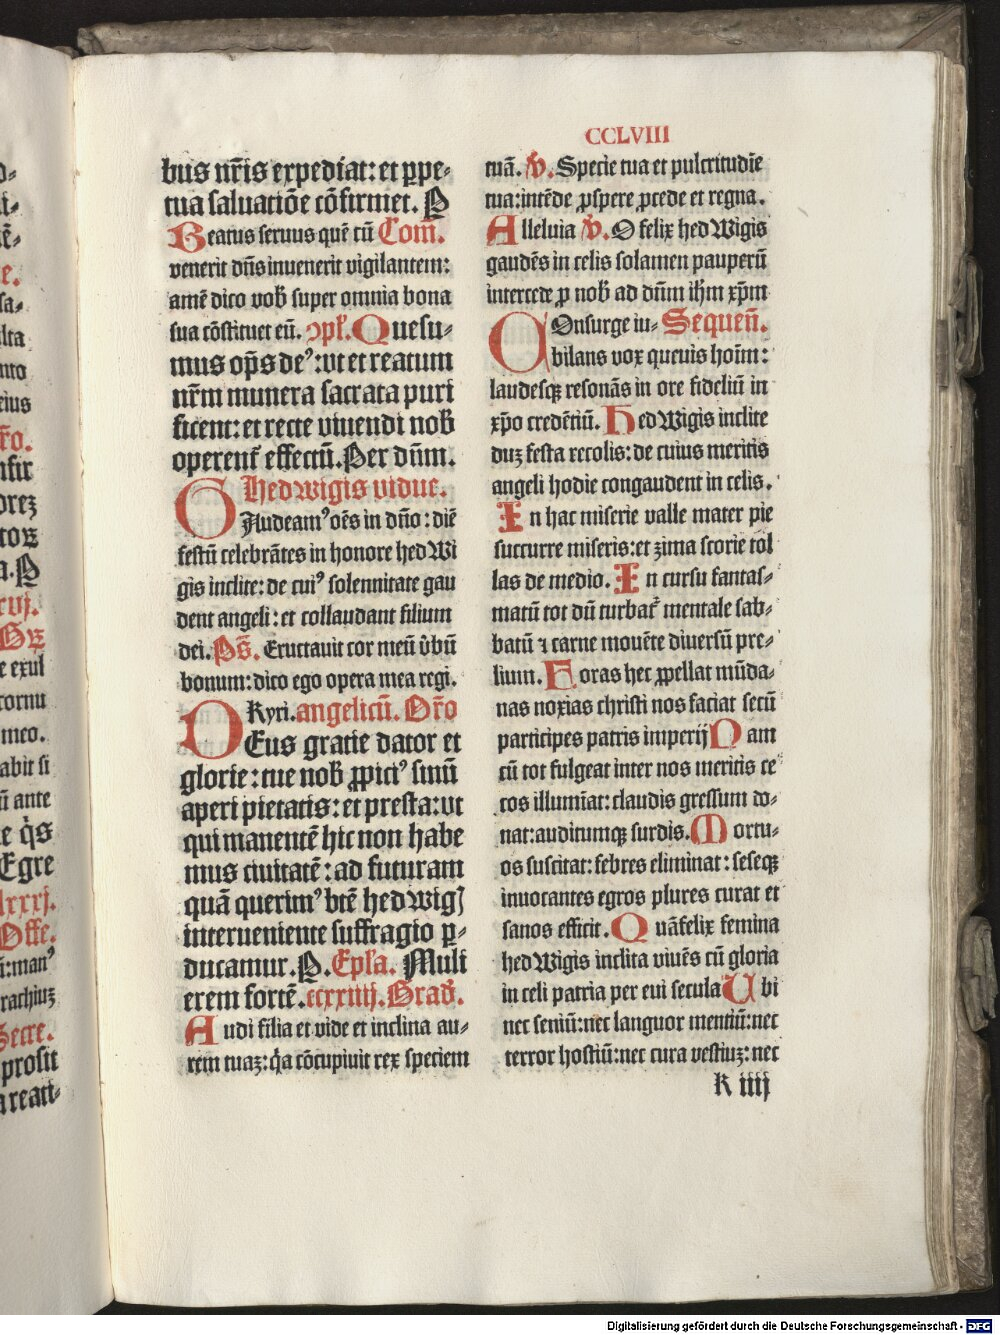 CCLVIII
bus nr̄is expediat: et ꝑpe-
tua saluatiōe cōfirmet. P
Beatus seruus quē cū Com̄.
venerit dn̄s inuenerit vigilantem:
amē dico vob̄ super omnia bona
sua cōstituet eū. ꝯpl̄. Quesu-
mus op̄s deꝰ: vt et reatum
nr̄m munera sacrata puri
ficent: et recte viuendi nob̄
operent᷑ effectū. Per dn̄m.
Hedwigis vidue.
GAudeamꝰ oēs in dn̄o: diē
festū celebrātes in honore hedwi
gis inclite: de cuiꝰ solennitate gau
dent angeli: et collaudant filium
dei. Ps̄. Eructauit cor meū v̄bū
bonum: dico ego opera mea regi.
Kyri. angelicū. Or̄o
DEus gratie dator et
glorie: tue nob̄ ꝓpiciꝰ sinū
aperi pietatis: et presta: vt
qui manentē hic non habe
mus ciuitatē: ad futuram
quā querimꝰ btē hedwigꝭ
interueniente suffragio ꝑ-
ducamur. P. Epl̄a. Muli
erem fortē. ccxxiiij. Grad̄.
Audi filia et vide et inclina au-
rem tuaꝫ: q̄a cōcupiuit rex speciem
tuā. V̄. Specie tua et pulcritudīe
tua: intēde ꝓspere ꝓcede et regna.
Alleluia V̄. O felix hedwigis
gaudēs in celis solamen pauperū
intercede ꝓ nob̄ ad dn̄m ih̄m xp̄m
COnsurge iu- Sequen̄.
bilans vox queuis hoīm:
laudesqꝫ resonās in ore fideliū in
xp̄o credētiū. Hedwigis inclite
duꝫ festa recolis: de cuius meritis
angeli hodie congaudent in celis.
In hac miserie valle mater pie
succurre miseris: et zima scorie tol
las de medio. In cursu fantas-
matū tot dū turbat᷑ mentale sab-
batū ⁊ carne mouēte diuersū pre-
lium. Horas hec ꝓpellat mūda-
nas noxias christi nos faciat secū
participes patris imperij Nam
cū tot fulgeat inter nos meritis ce
cos illumīat: claudis gressum do-
nat: auditumqꝫ surdis. Mortu-
os suscitat: febres eliminat: seseqꝫ
inuocantes egros plures curat et
sanos efficit. Quāfelix femina
hedwigis inclita viuēs cū gloria
in celi patria per eui secula Ubi
nec seniū: nec languor mentiū: nec
terror hostiū: nec cura vestiuꝫ: nec
K iiij
Digitalisierung gefördert durch die Deutsche Forschungsgemeinschaft - DFG